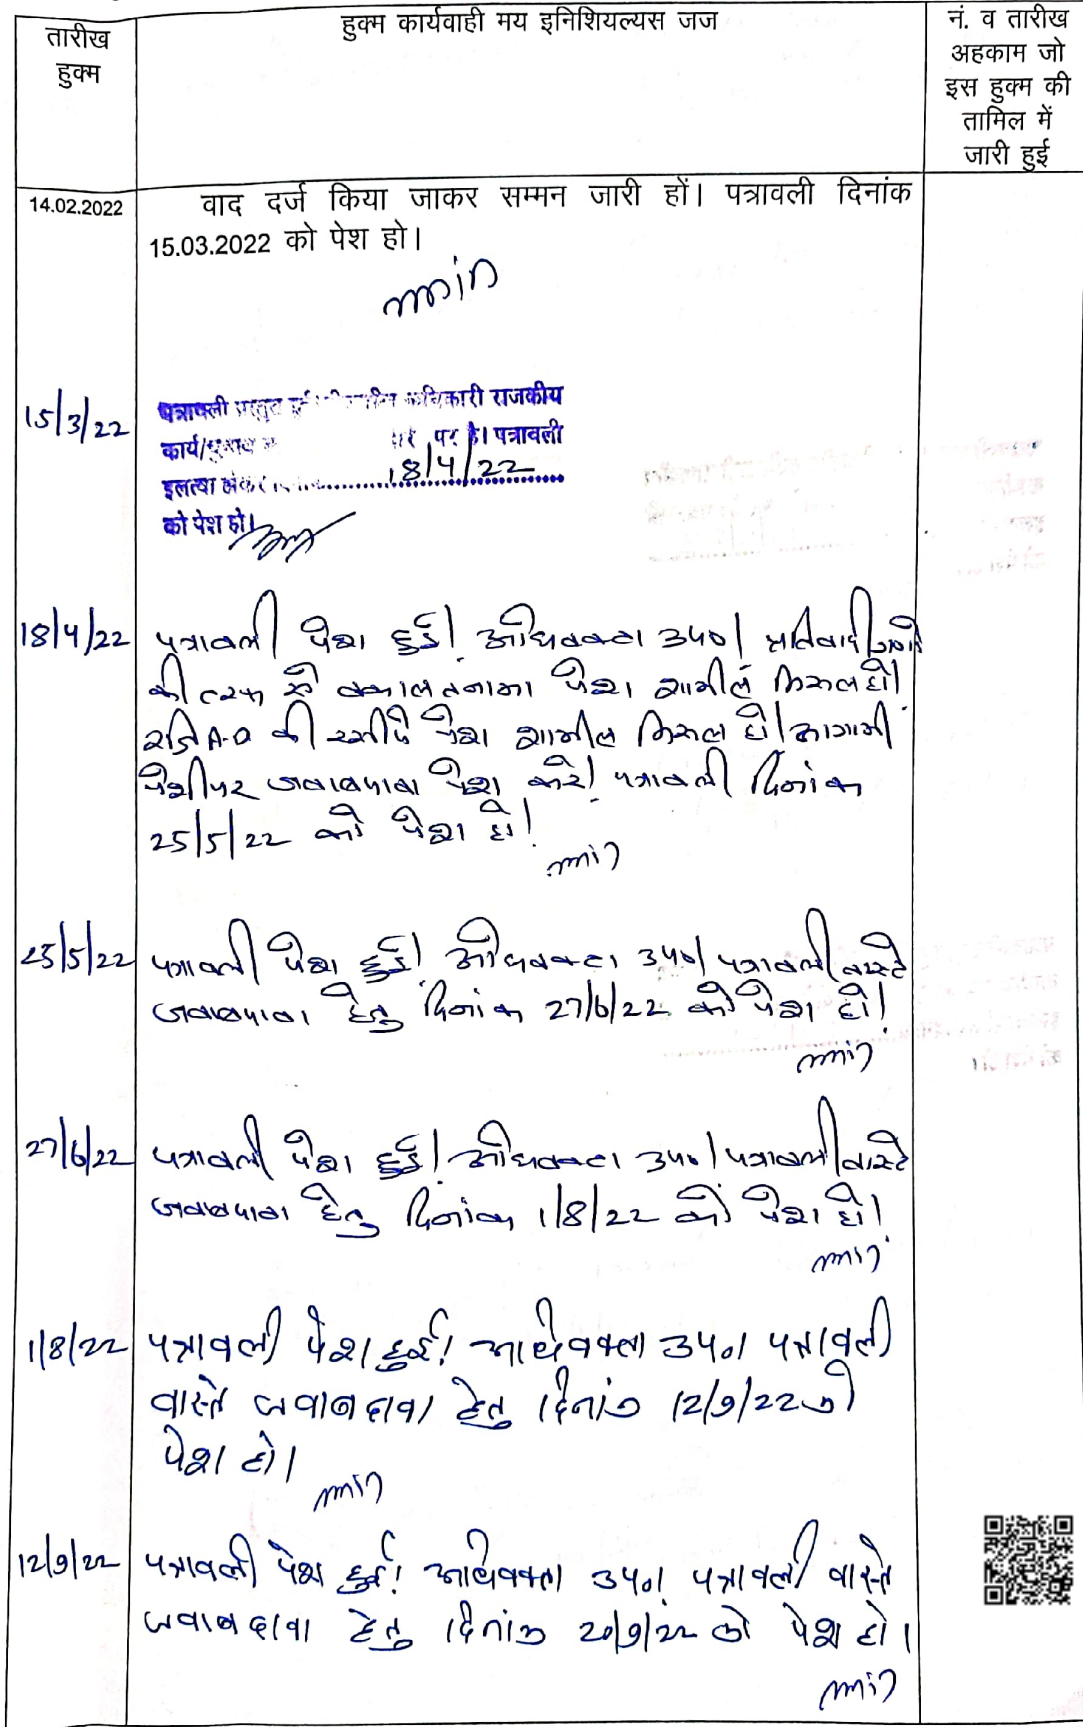 तारीख
हुक्म
हुक्म कार्यवाही मय इनिशियल्यस जज
नं. व तारीख
अहकाम जो
इस हुक्म की
तामिल में
जारी हुई
14.02.2022
वाद दर्ज किया जाकर सम्मन जारी हों। पत्रावली दिनांक
15.03.2022 को पेश हो।
15/3/22
पत्रावली प्रस्तुत अधिकारी राजकीय
कार्य/चुनाव पर है। पत्रावली
18/4/22
को पेश हो।
18/4/22 पत्रावली पेश हुई। अधिवक्ता उप०। प्रतिवादी
की तरफ से वकालतनामा पेश शामील मिसल हो।
रजि A.D की रसीदे पेश शामील मिसल हो। आगामी
पेशी पर जवाबदावा पेश करे। पत्रावली दिनांक
25/5/22 को पेश हो।
25/5/22 पत्रावली पेश हुई। अधिवक्ता उप०। पत्रावली वास्ते
जवाबदावा हेतु दिनांक 27/6/22 को पेश हो।
27/6/22 पत्रावली पेश हुई। अधिवक्ता उप०। पत्रावली वास्ते
जवाबदावा हेतु दिनांक 1/8/22 को पेश हो।
1/8/22 पत्रावली पेश हुई। अधिवक्ता उप०। पत्रावली
वास्ते जवाबदावा हेतु दिनांक 12/9/22 को
पेश हो।
12/9/22 पत्रावली पेश हुई। अधिवक्ता उप०। पत्रावली वास्ते
जवाबदावा हेतु दिनांक 20/9/22 को पेश हो।